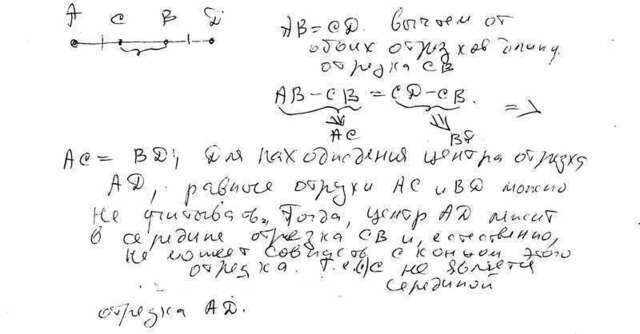 A C B D
AB = CD. Вычтем от
обоих отрезков длину
отрезка CB
AB - CB = CD - CB. =>
AC BD
AC = BD; Для нахождения центра отрезка
AD, равные отрезки AC и BD можно
не учитывать. Тогда, центр AD лежит
в середине отрезка CB и, естественно,
не может совпасть с концом этого
отрезка. Т.е. C не является
серединой
отрезка AD.